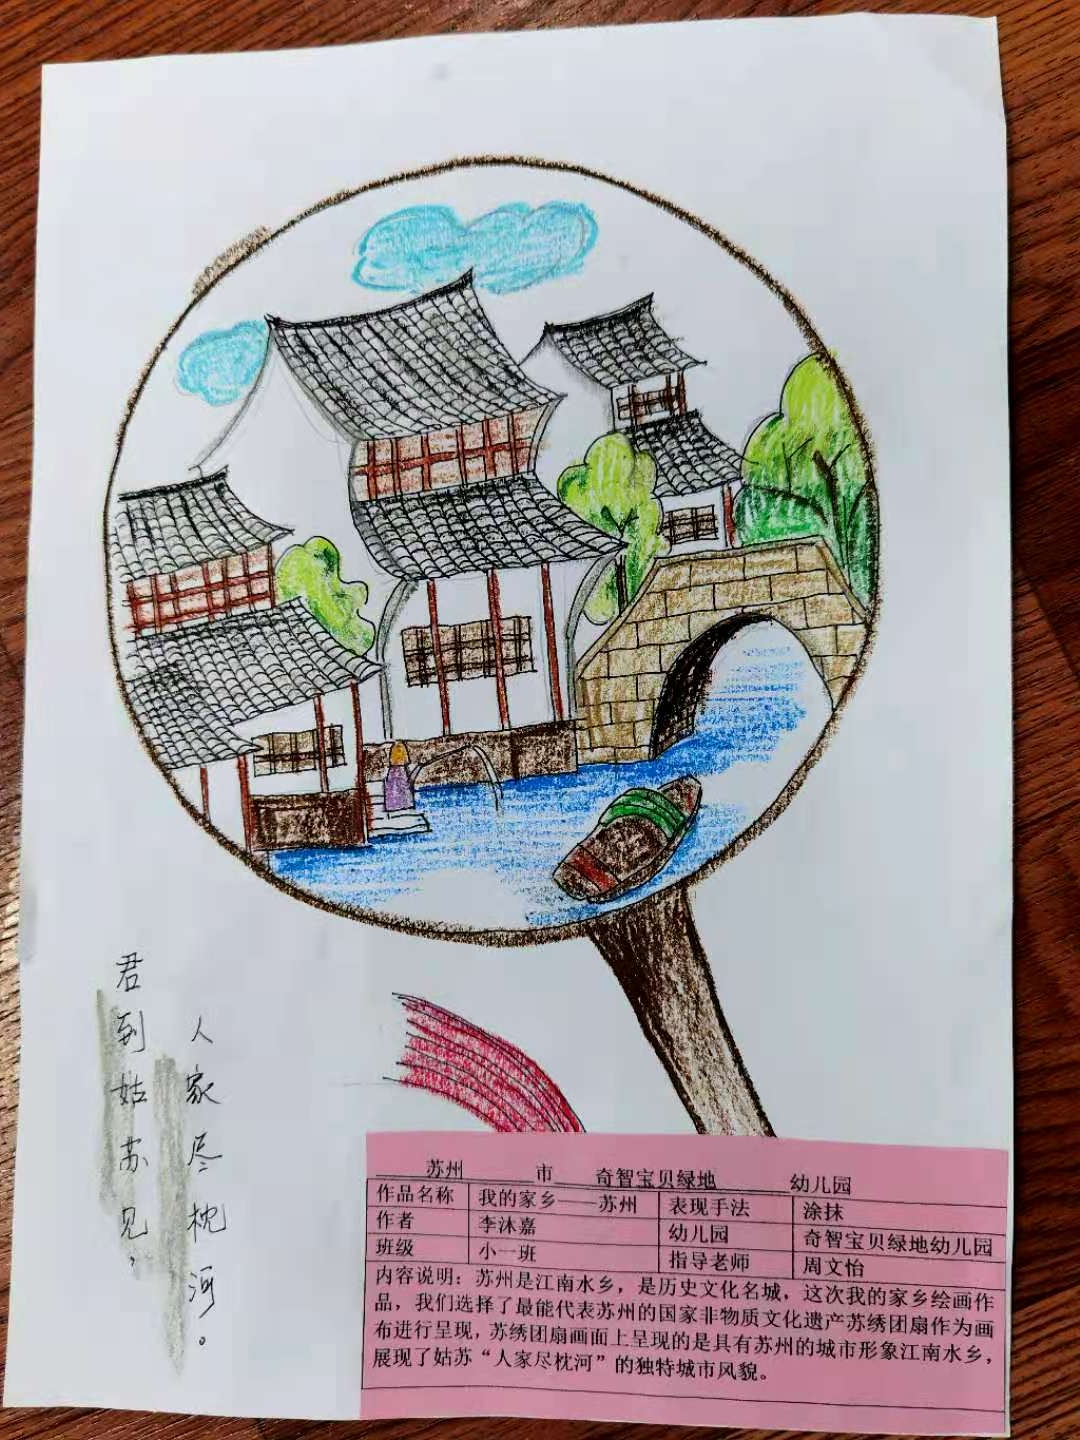 君到姑苏见，
人家尽枕河。
苏州 市 奇智宝贝绿地 幼儿园
作品名称 我的家乡——苏州 表现手法 涂抹
作者 李沐嘉 幼儿园 奇智宝贝绿地幼儿园
班级 小一班 指导老师 周文怡
内容说明：苏州是江南水乡，是历史文化名城，这次我的家乡绘画作
品，我们选择了最能代表苏州的国家非物质文化遗产苏绣团扇作为画
布进行呈现，苏绣团扇画面上呈现的是具有苏州的城市形象江南水乡，
展现了姑苏“人家尽枕河”的独特城市风貌。